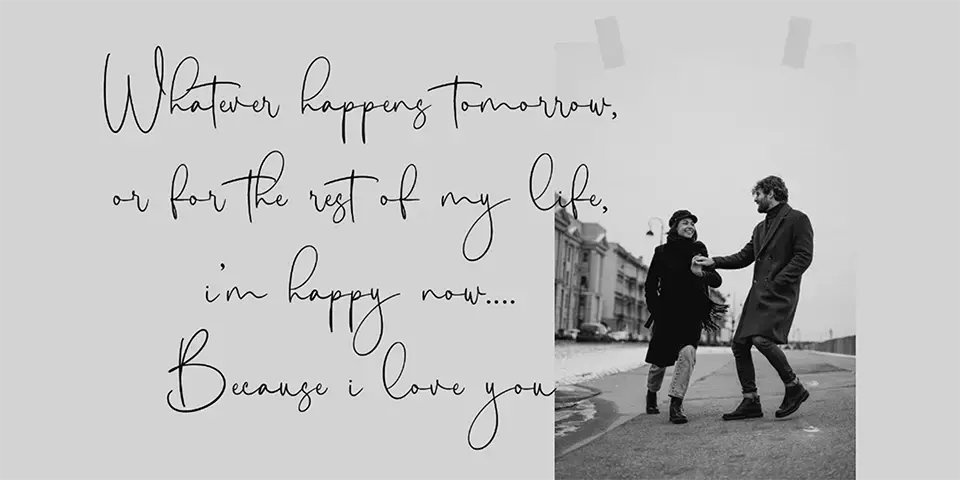 Whatever happens tomorrow,
or for the rest of my life,
i'm happy now....
Because i love you